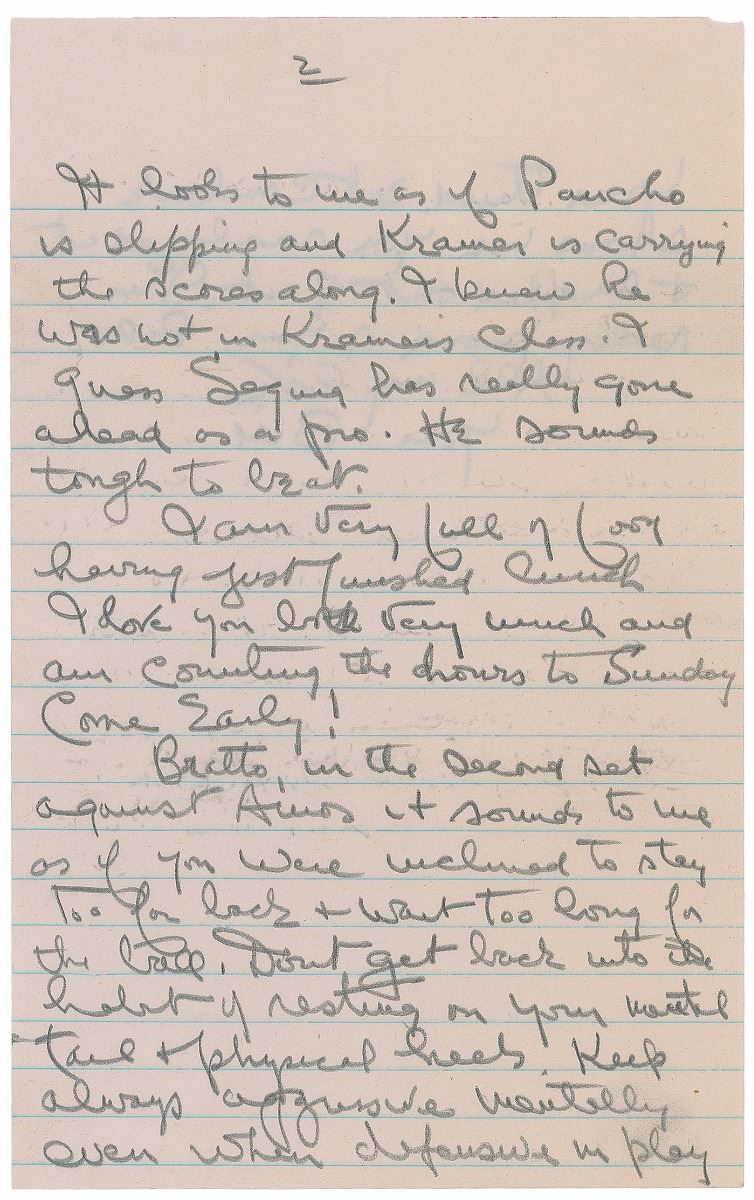 2
It looks to me as if Pancho
is slipping and Kramer is carrying
the scores along. I knew he
was not in Kramer's class. I
guess Segura has really gone
ahead as a pro. He sounds
tough to beat.
I am very full of food
having just finished lunch
I love you both very much and
am counting the hours to Sunday
Come Early!
in the second set
against Amos it sounds to me
as if you were inclined to stay
too far back + wait too long for
the ball. Dont get back into the
habit of resting on your mental
tail + physical heels. Keep
always aggressive mentally
even when defensive in play